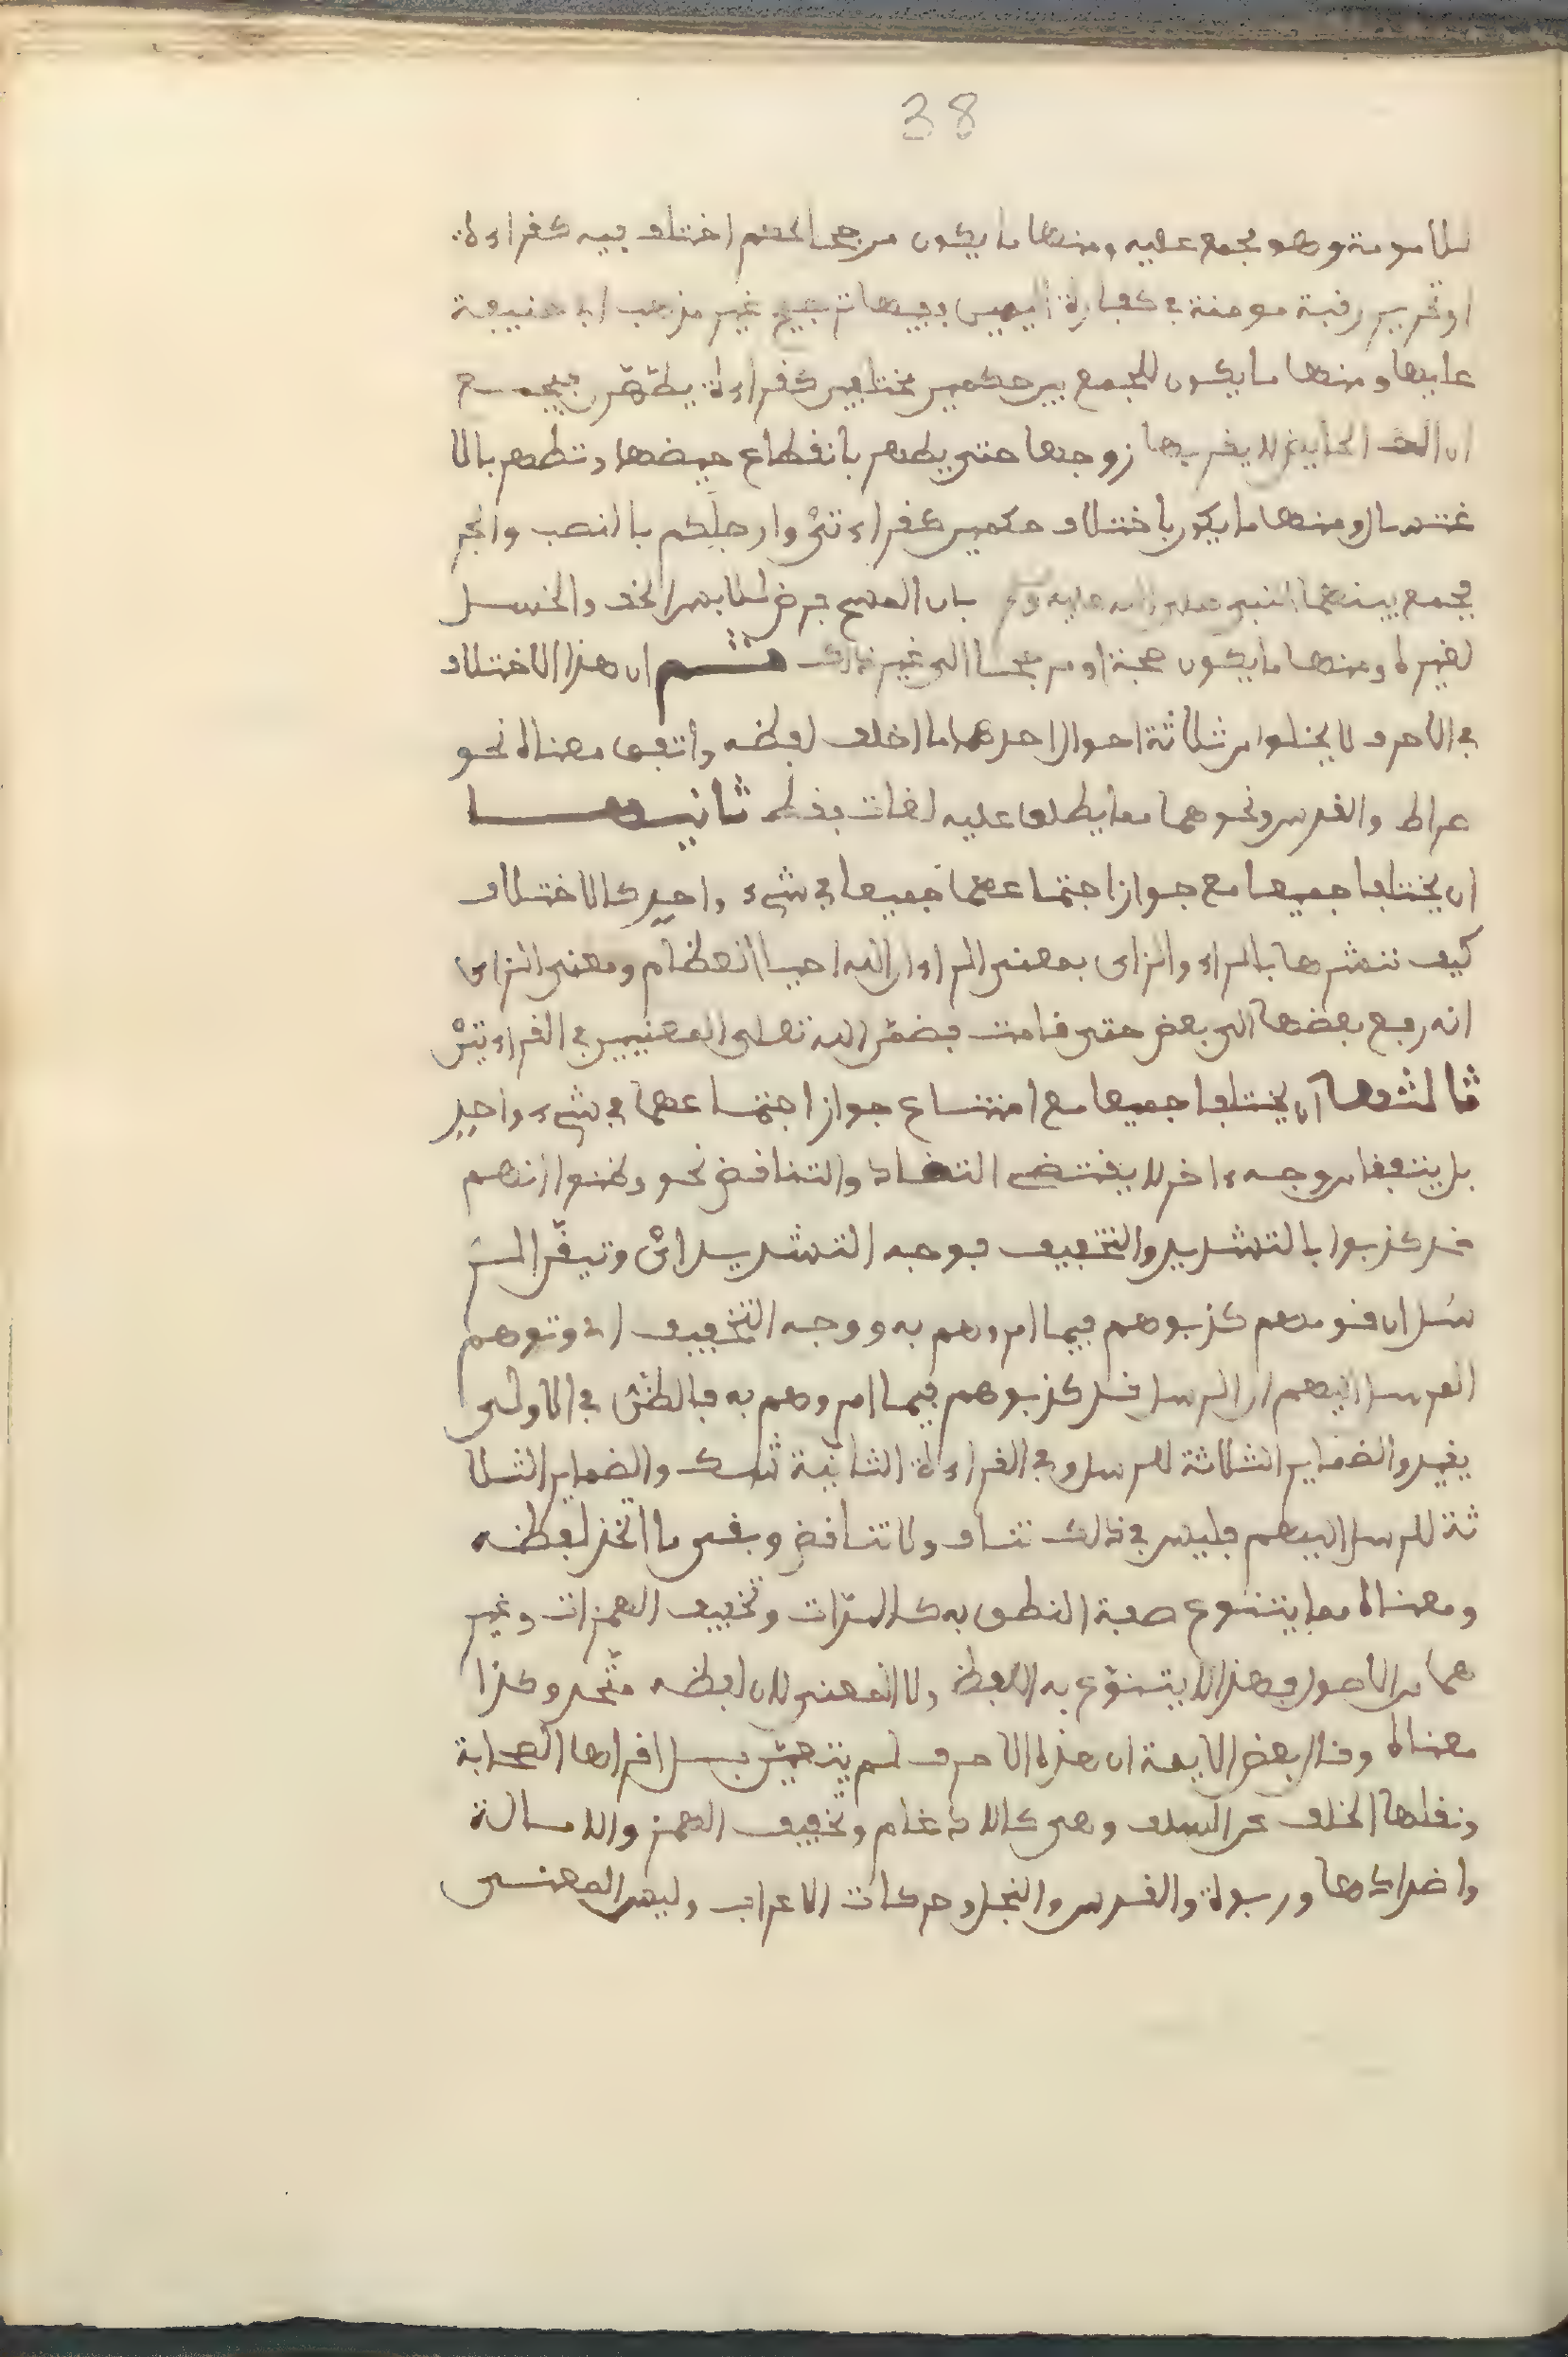 38
للامومة وهو مجمع عليه ومنها ما يكون مرجحا لحكم اختلف فيه كقراءة
او تحرير رقبة مومنة في كفارة اليمين ففيها ترجيح غير مذهب ابي حنيفة
عليها ومنها ما يكون للجمع بين حكمين مختلفين كقراءة يطّهّرن فيجمع
ان الحايض لا يقربها زوجها حتى يطهر بانقطاع حيضها وتطهر بالا
غتسال ومنها ما يكون باختلاف حكمين كقراءتيْ وارجلكم بالنصب والجر
فيجمع بينهما النبي صلى الله عليه وسلم بان المسح فرض للابس الخف والغسل
لغيره ومنها ما يكون حجة او مرجحا الى غير ذالك ثم ان هذا الاختلاف
في الاحرف لا يخلوا من ثلاثة احوال احدها ما اختلف لفظه واتفق معناه نحو
صراط والقدس ونحوهما مما يطلق عليه لغات بفظ ثانيها
ان يختلفا جميعا مع جواز اجتماعهما جميعا في شيء واحد كالاختلاف
كيف ننشرها بالراء والزاى بمعنى الراء ان الله احيا العظام ومعنى الزاى
انه رفع بعضها الى بعض حتى قامت فضمّن الله تعلى المعنيين في القراءتيْن
ثالثها ان يختلفا جميعا مع امتناع جواز اجتماعهما في شيء واحد
بل يتفقا من وجه ءاخر لا يقتضي التضاد والتناقض نحو وظنوا انهم
قد كذبوا بالتشديد والتخفيف فوجه التشديد اىْ وتيقّن الر
سل ان قومهم كذبوهم فيما امروهم به ووجه التخفيف اى وتوهم
المرسل اليهم ان الرسل قد كذبوهم فيما امروهم به فالظنّ في الاولى
يقين والضماير الثلاثة للرسل وفي القراءة الثانية شك والضماير الثلا
ثة للمرسل اليهم فليس في ذالك تناف ولا تناقض وبقى ما اتخذ لفظه
ومعناه مما يتنوع صفة النطق به كالمدّات وتخفيف الهمزات وغير
هما من الاصول فهذا لا يتنوّع به اللفظ ولا المعنى لان لفظه متّحد وكذا
معناه وقال بعض الايمة ان هذه الاحرف لم يتعيّن بل اقراها الصحابة
ونقلها الخلف عن السلف وهى كالادغام وتخفيف الهمز والامالة
واضدادها وربوة والقدس والبخل وحركات الاعراب وليس المعنى